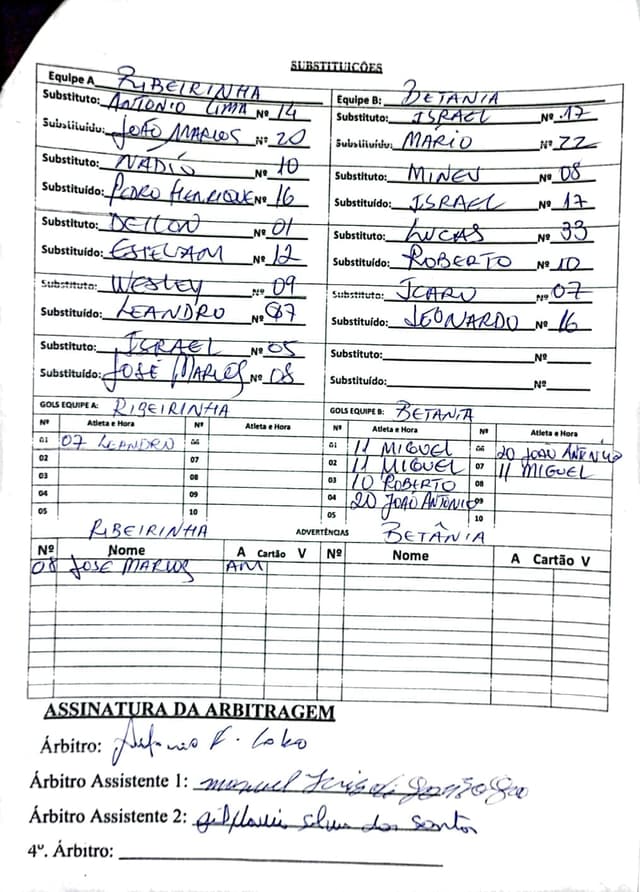 SUBSTITUICÕES
Equipe A RIBEIRINHA
Substituto: ANTONIO LIMA Nº 14
Substituído: JOÃO MARCOS Nº 20
Substituto: NADIÓ Nº 10
Substituído: PEDRO HENRIQUE Nº 16
Substituto: DEILON Nº 01
Substituído: ESTEVAM Nº 12
Substituto: WESLEY Nº 09
Substituído: LEANDRO Nº 07
Substituto: ISRAEL Nº 05
Substituído: JOSÉ MARCOS Nº 08
Equipe B: BETANIA
Substituto: ISRAEL Nº 17
Substituído: MÁRIO Nº 22
Substituto: MINEU Nº 08
Substituído: ISRAEL Nº 17
Substituto: LUCAS Nº 33
Substituído: ROBERTO Nº 10
Substituto: ICARO Nº 07
Substituído: LEONARDO Nº 16
Substituto: Nº
Substituído: Nº
GOLS EQUIPE A: RIBEIRINHA
Nº Atleta e Hora Nº
01 07 LEANDRO 06
02 07
03 08
04 09
05 10
GOLS EQUIPE B: BETANIA
Nº Atleta e Hora Nº Atleta e Hora
01 11 MIGUEL 06 20 JOÃO ANTONIO
02 11 MIGUEL 07 11 MIGUEL
03 10 ROBERTO 08
04 20 JOÃO ANTONIO 09
05 10
RIBEIRINHA ADVERTÊNCIAS BETÂNIA
Nº Nome A Cartão V Nº Nome A Cartão V
08 JOSE MARCOS AM
ASSINATURA DA ARBITRAGEM
Árbitro: F. Lobo
Árbitro Assistente 1: manuel
Árbitro Assistente 2: silva dos santos
4º. Árbitro: